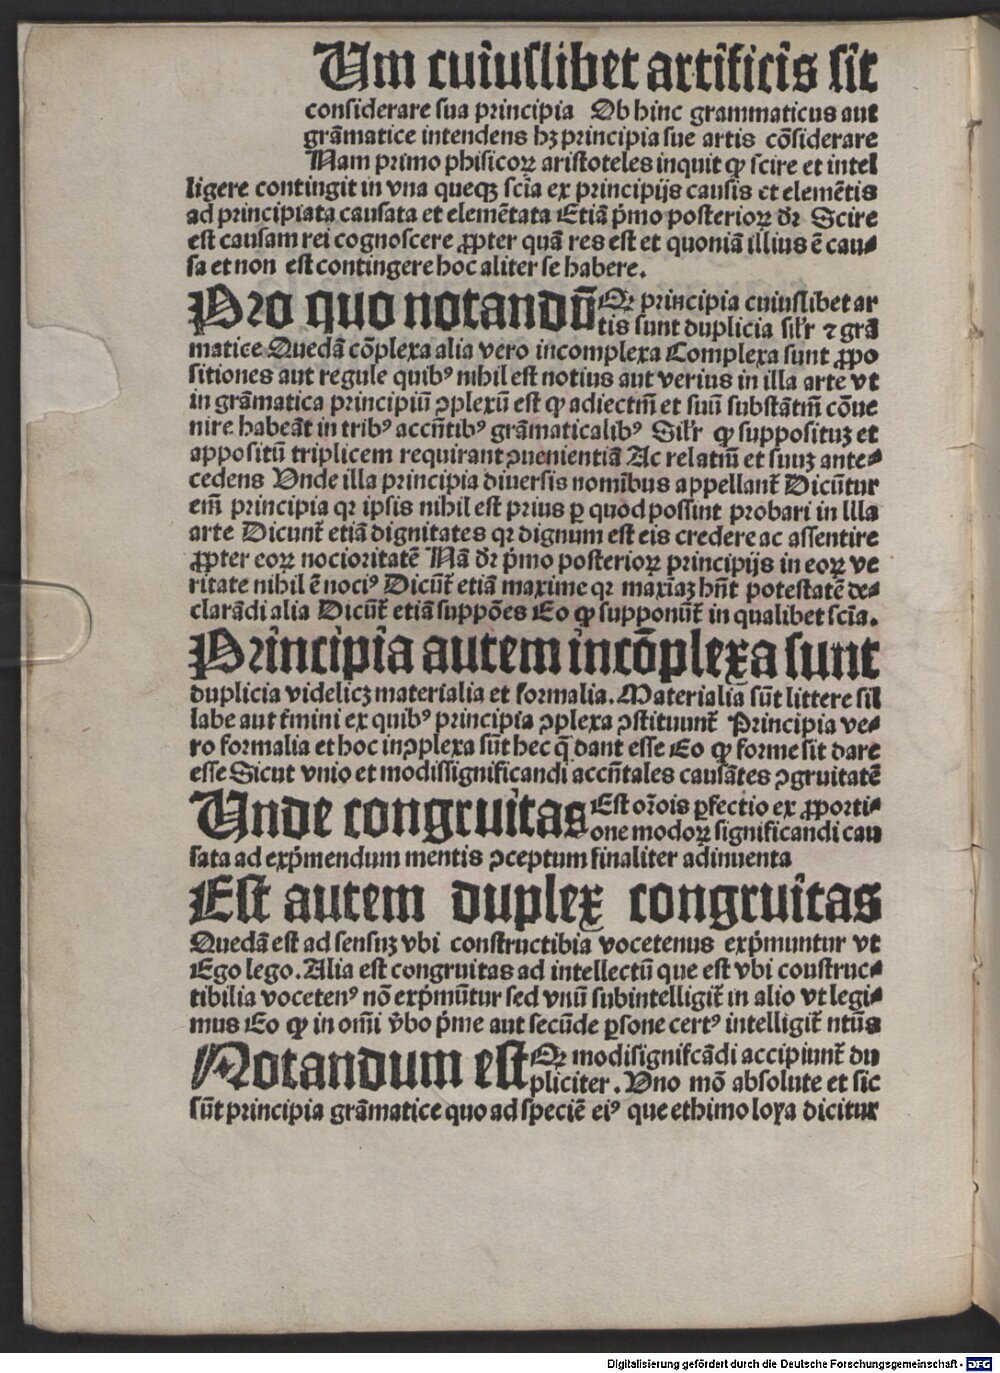 Um cuiuslibet artificis sit
considerare sua principia Ob hinc grammaticus aut
grãmatice intendens hꝫ principia sue artis cõsiderare
Nam primo phisicoꝝ aristoteles inquit ꝙ scire et intel
ligere contingit in vna queqꝫ scĩa ex principijs causis et elemẽtis
ad principiata causata et elemẽtata Etiã p̃mo posterioꝝ dr̃ Scire
est causam rei cognoscere ꝓpter quã res est et quoniã illius ẽ cau⸗
sa et non est contingere hoc aliter se habere.
Pro quo notandũ Qꝛ principia cuiuslibet ar
tis sunt duplicia sil'r ⁊ grã
matice Quedã cõplexa alia vero incomplexa Complexa sunt ꝓpo
sitiones aut regule quibꝰ nihil est notius aut verius in illa arte vt
in grãmatica principiũ ꝯplexũ est ꝙ adiectm̃ et suũ substãtm̃ cõue
nire habeãt in tribꝰ accñtibꝰ grãmaticalibꝰ Sil'r ꝙ supposituꝫ et
appositũ triplicem requirant ꝯuenientiã Ac relatiũ et suuꝫ ante⸗
cedens Vnde illa principia diuersis nomĩbus appellant̃ Dicũtur
em̃ principia qꝛ ipsis nihil est prius ꝑ quod possint probari in llla
arte Dicunt̃ etiã dignitates qꝛ dignum est eis credere ac assentire
ꝓpter eoꝝ nocioritatẽ Nã dr̃ p̃mo posterioꝝ principijs in eoꝝ ve
ritate nihil ẽ nociꝰ Dicũt̃ etiã maxime qꝛ maxĩaꝫ hñt potestatẽ de⸗
clarãdi alia Dicũt̃ etiã suppões Eo ꝙ supponũt̃ in qualibet scĩa.
Principia autem incõplexa sunt
duplicia videlicꝫ materialia et formalia. Materialia sũt littere sil
labe aut t̃mini ex quibꝰ principia ꝯplexa ꝯstituunt̃ Principia ve⸗
ro formalia et hoc inꝯplexa sũt hec q̃ dant esse Eo ꝙ forme sit dare
esse Sicut vnio et modissignificandi accñtales causãtes ꝯgruitatẽ
Unde congruitas Est or̃ois ꝑfectio ex ꝓporti⸗
one modoꝝ significandi cau
sata ad exp̃mendum mentis ꝯceptum finaliter adinuenta
Est autem duplex congruitas
Quedã est ad sensuꝫ vbi constructibia vocetenus exp̃muntur vt
Ego lego. Alia est congruitas ad intellectũ que est vbi construc⸗
tibilia vocetenꝰ nõ exp̃mũtur sed vnũ subintelligit̃ in alio vt legi⸗
mus Eo ꝙ in om̃i v̾bo p̃me aut secũde ꝑsone certꝰ intelligit̃ ntũs
Notandum est Qꝛ modisignifcãdi accipiunt̃ du
pliciter. Vno mõ absolute et sic
sũt principia grãmatice quo ad speciẽ eiꝰ que ethimoloya dicitur
Digitalisierung gefördert durch die Deutsche Forschungsgemeinschaft - DFG